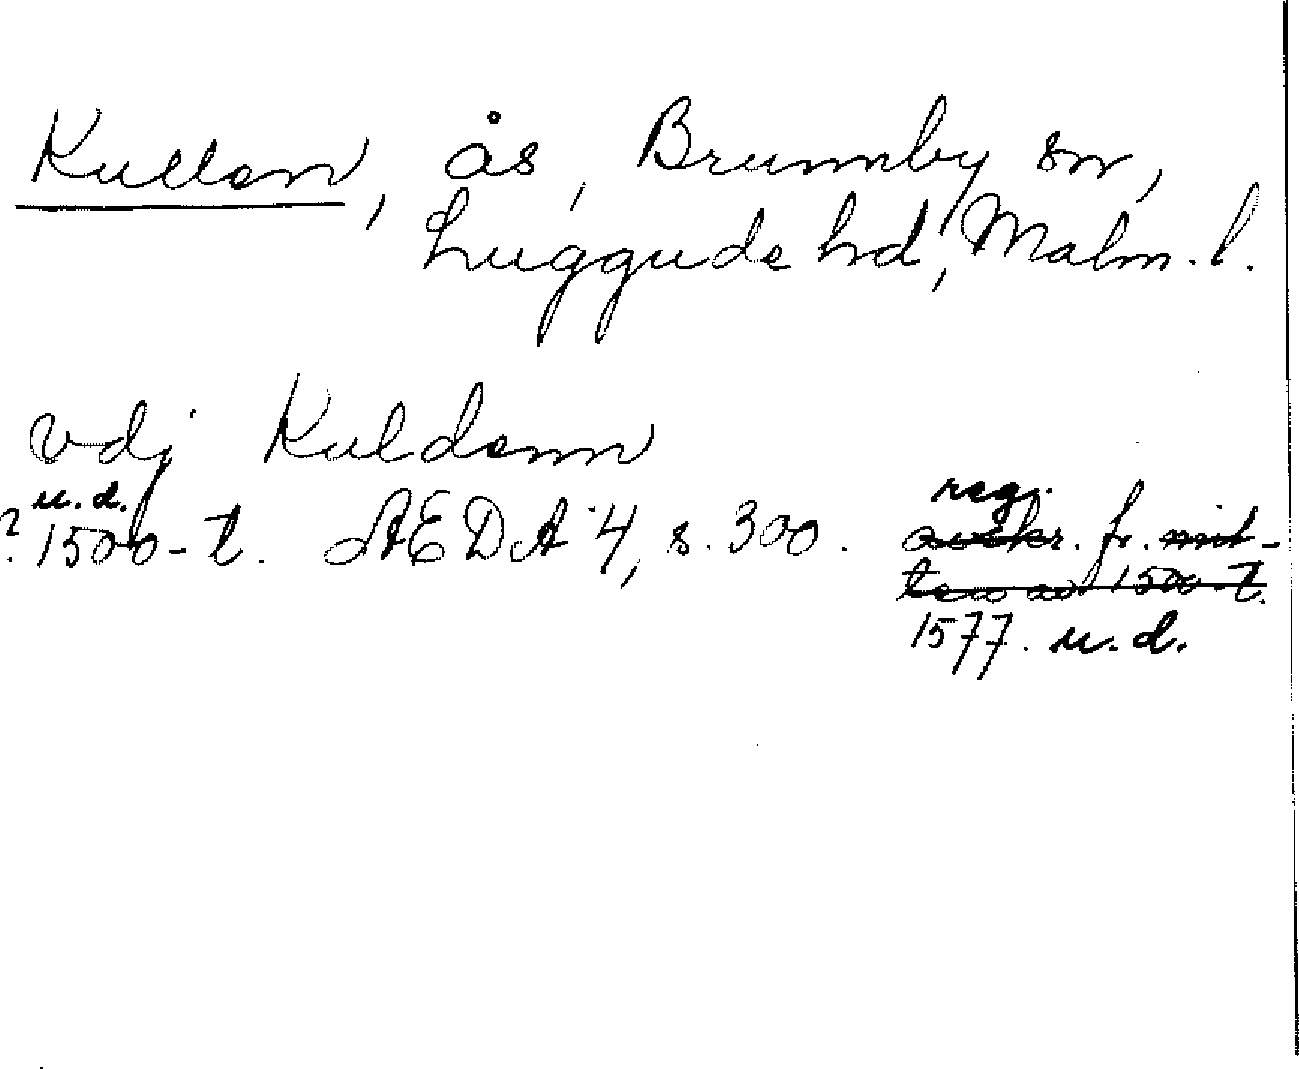 Kullen, ås, Brunnby sn,
Luggude hd, Malm. l.
vdj Kuldenn
u. d. reg.
? 1500-t. AEDA 4, s. 300. avskr. fr. mit-
ten av 1500-t.
1577. u. d.